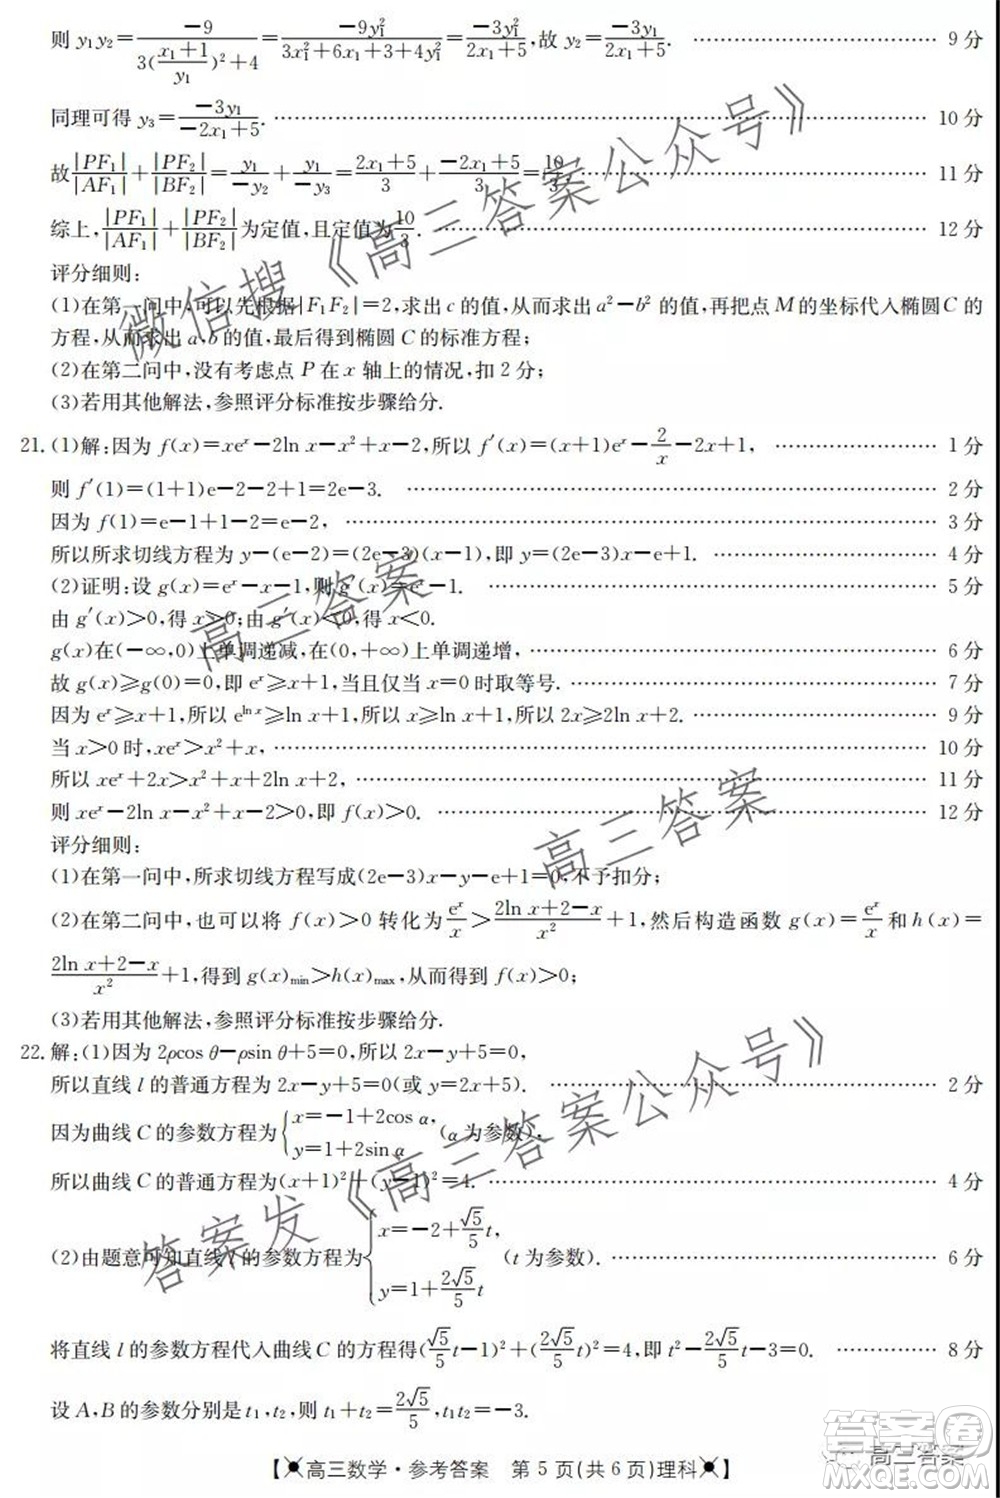 则 y₁y₂=−9/(3((x₁+1)/y₁)²+4)=−9y₁²/(3x₁²+6x₁+3+4y₁²)=−3y₁²/(2x₁+5),故 y₂=−3y₁²/(2x₁+5). ………… 9 分
同理可得 y₃=−3y₁/(−2x₁+5). ………… 10 分
故|PF₁|/|AF₁|+|PF₂|/|BF₂|=y₁/−y₂+y₁/−y₃=(2x₁+5)/3+(−2x₁+5)/3=10/3, ………… 11 分
综上,|PF₁|/|AF₁|+|PF₂|/|BF₂|为定值,且定值为10/3. ………… 12 分
评分细则:
(1)在第一问中,可以先根据|F₁F₂|=2,求出 c 的值,从而求出 a²−b² 的值,再把点 M 的坐标代入椭圆 C 的
方程,从而求出 a,b 的值,最后得到椭圆 C 的标准方程;
(2)在第二问中,没有考虑点 P 在 x 轴上的情况,扣 2 分;
(3)若用其他解法,参照评分标准按步骤给分.
21.(1)解:因为 f(x)=xeˣ−2ln x−x²+x−2,所以 f′(x)=(x+1)eˣ−2/x−2x+1, ………… 1 分
则 f′(1)=(1+1)e−2−2+1=2e−3. ………… 2 分
因为 f(1)=e−1+1−2=e−2, ………… 3 分
所以所求切线方程为 y−(e−2)=(2e−3)(x−1),即 y=(2e−3)x−e+1. ………… 4 分
(2)证明:设 g(x)=eˣ−x−1,则 g′(x)=eˣ−1. ………… 5 分
由 g′(x)>0,得 x>0;由 g′(x)<0,得 x<0.
g(x)在(−∞,0)上单调递减,在(0,+∞)上单调递增, ………… 6 分
故 g(x)≥g(0)=0,即 eˣ≥x+1,当且仅当 x=0 时取等号. ………… 7 分
因为 eˣ≥x+1,所以 e^(ln x)≥ln x+1,即 x≥ln x+1,所以 2x≥2ln x+2. ………… 9 分
当 x>0 时,xeˣ>x²+x, ………… 10 分
所以 xeˣ+2x>x²+x+2ln x+2, ………… 11 分
则 xeˣ−2ln x−x²+x−2>0,即 f(x)>0. ………… 12 分
评分细则:
(1)在第一问中,所求切线方程写成(2e−3)x−y−e+1=0,不予扣分;
(2)在第二问中,也可以将 f(x)>0 转化为eˣ/x>(2ln x+2−x)/x²+1,然后构造函数 g(x)=eˣ/x和 h(x)=
(2ln x+2−x)/x²+1,得到 g(x)min>h(x)max,从而得到 f(x)>0;
(3)若用其他解法,参照评分标准按步骤给分.
22.解:(1)因为 2ρcos θ−ρsin θ+5=0,所以 2x−y+5=0,
所以直线 l 的普通方程为 2x−y+5=0(或 y=2x+5). ………… 2 分
因为曲线 C 的参数方程为{x=−1+2cos α, y=1+2sin α (α 为参数),
所以曲线 C 的普通方程为(x+1)²+(y−1)²=4. ………… 4 分
(2)由题意可知直线 l 的参数方程为{x=−2+(√5/5)t, y=1+(2√5/5)t (t 为参数). ………… 6 分
将直线 l 的参数方程代入曲线 C 的方程得((√5/5)t−1)²+((2√5/5)t)²=4,即 t²−(2√5/5)t−3=0. ………… 8 分
设 A,B 的参数分别是 t₁,t₂,则 t₁+t₂=2√5/5,t₁t₂=−3.
【高三数学·参考答案 第 5 页(共 6 页)理科】
微信搜《高三答案公众号》
高三答案
高三答案
答案发《高三答案公众号》
高三答案
答案圈
MXQE.COM